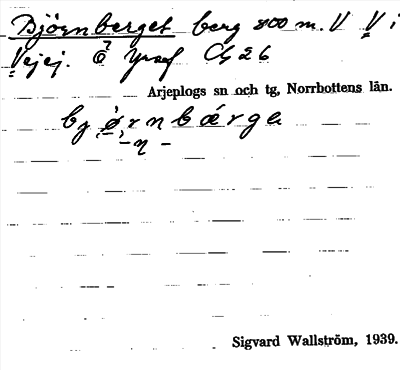 Björnberget berg 800 m. V V i
Vejej. Ö CG 26
Arjeplogs sn och tg, Norrbottens län.
bjørnbærge
-n-
Sigvard Wallström, 1939.